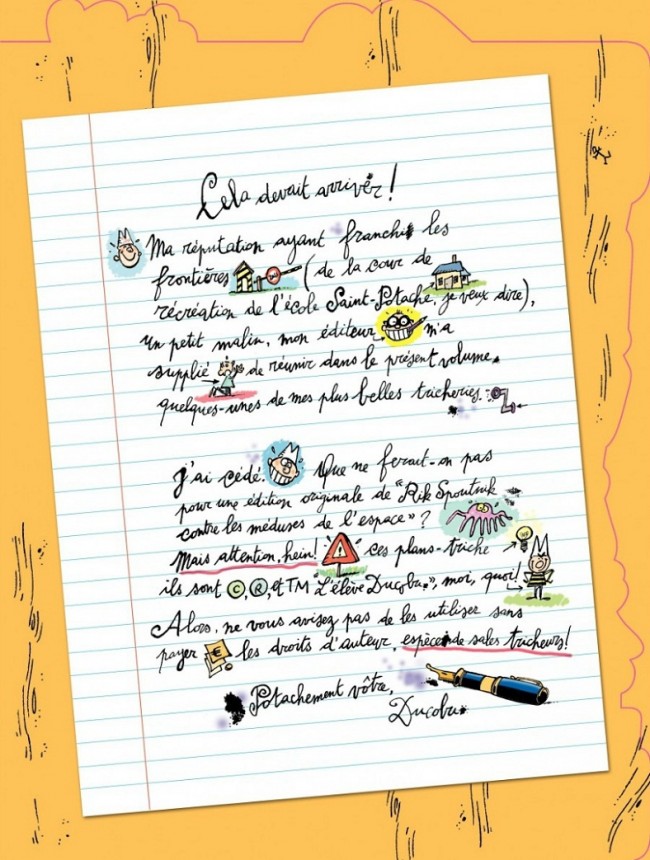 Cela devait arriver!
Ma réputation ayant franchi les
frontières (de la cour de
récréation de l'école Saint-Potache, je veux dire),
un petit malin, mon éditeur m'a
supplié de réunir dans le présent volume
quelques-unes de mes plus belles tricheries.
J'ai cédé. Que ne ferait-on pas
pour une édition originale de "Rik Spoutnik
contre les méduses de l'espace"?
Mais attention, hein! ces plans-triche
ils sont ©, ®, et TM "L'élève Ducobu", moi, quoi!
Alors, ne vous avisez pas de les utiliser sans
payer € les droits d'auteur, espèce de sales tricheurs!
Potachement vôtre,
Ducobu